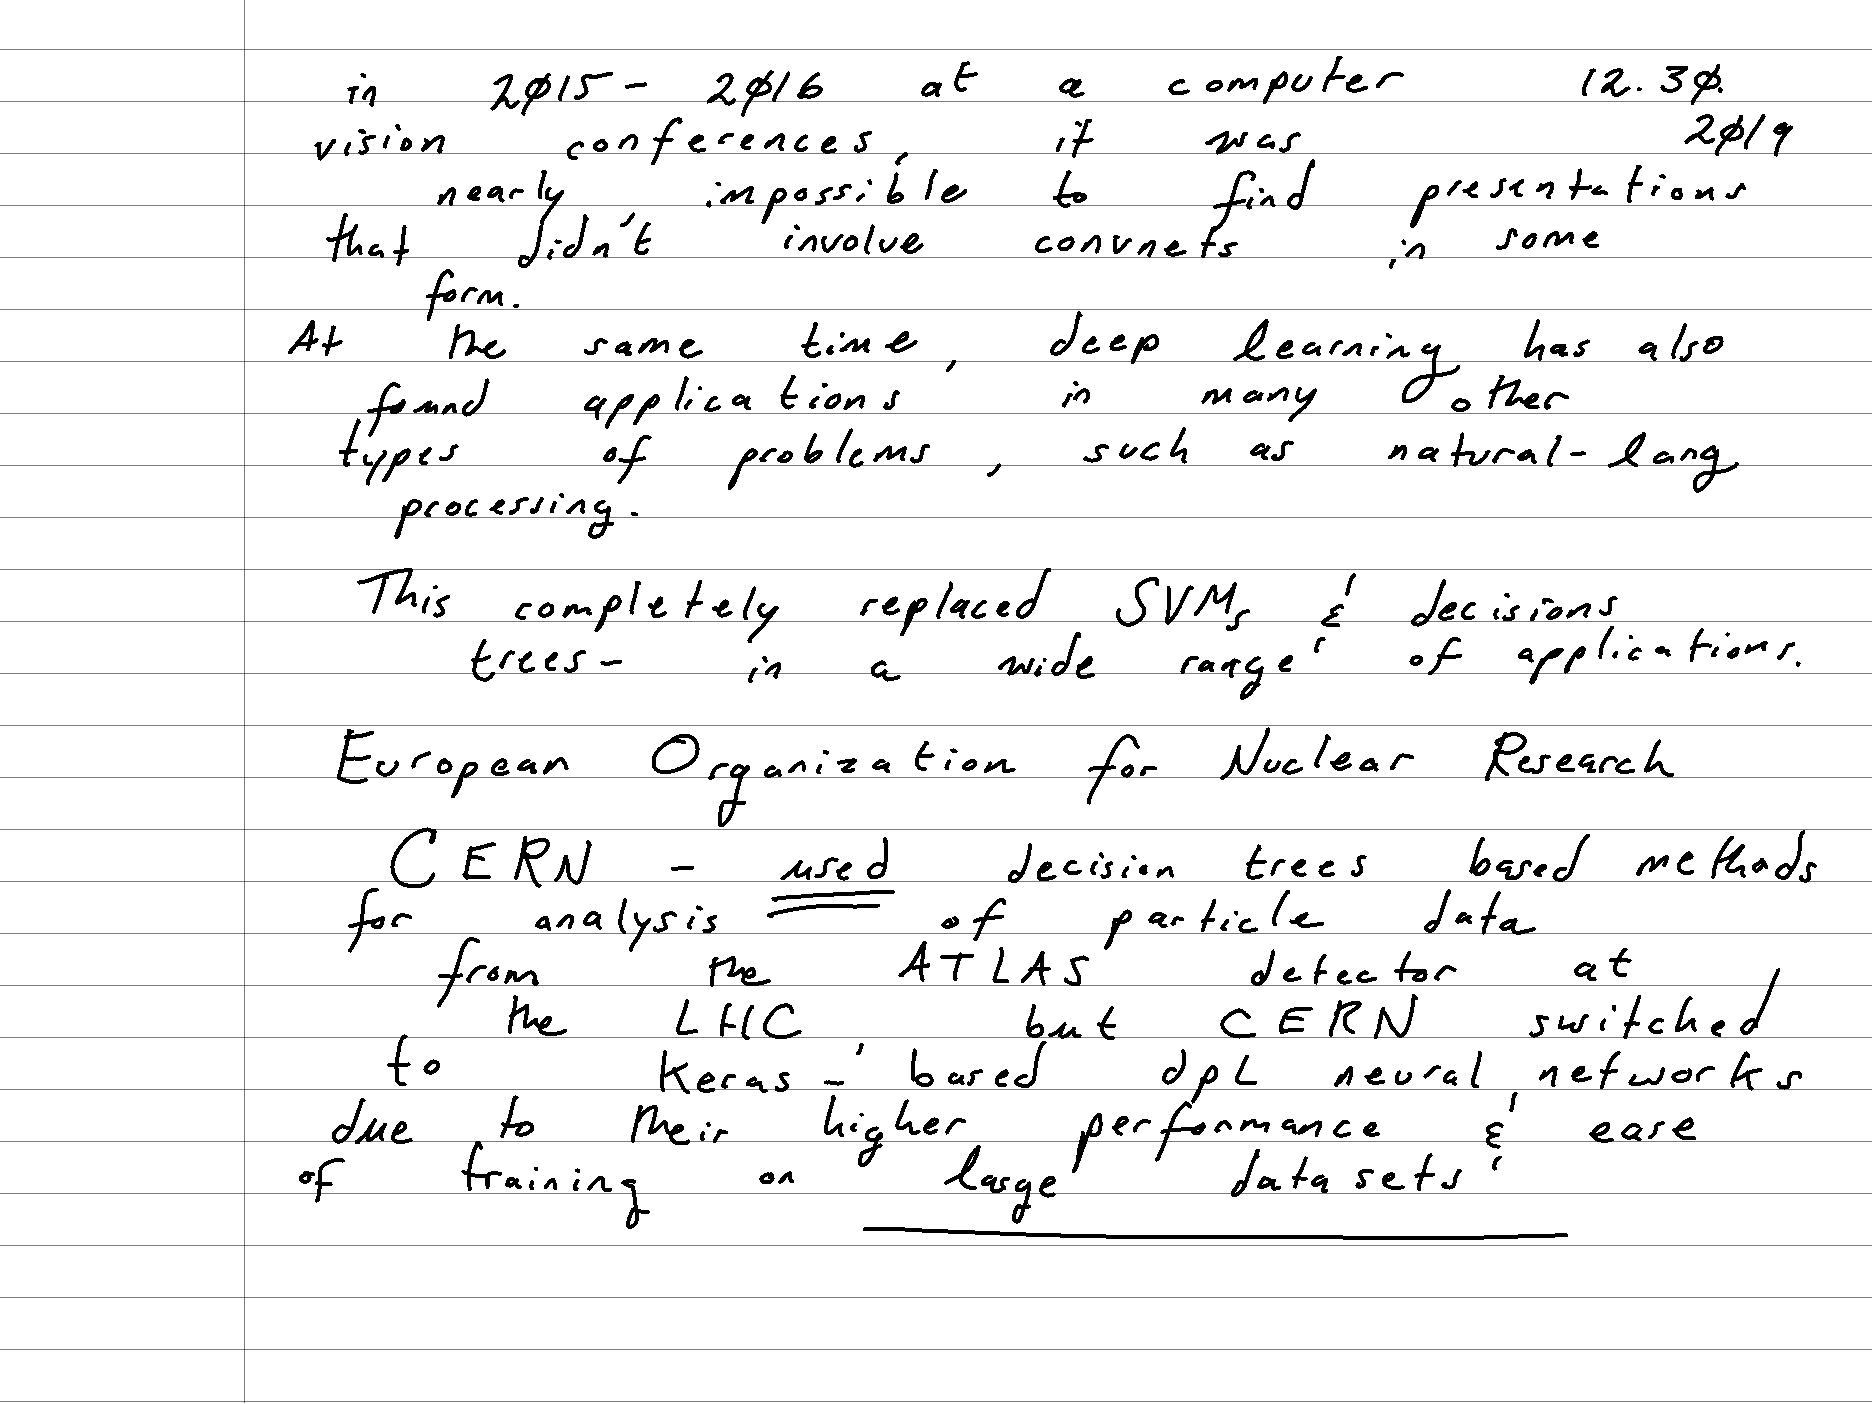 in 2015 - 2016 at a computer 12.30.
vision conferences, it was 2019
nearly impossible to find presentations
that didn't involve convnets in some
form.
At the same time, deep learning has also
found applications in many other
types of problems, such as natural-lang
processing.
This completely replaced SVMs & decisions
trees - in a wide range of applications.
European Organization for Nuclear Research
CERN - used decision trees based methods
for analysis of particle data
from the ATLAS detector at
the LHC, but CERN switched
to Keras - based dpL neural networks
due to their higher performance & ease
of training on large datasets